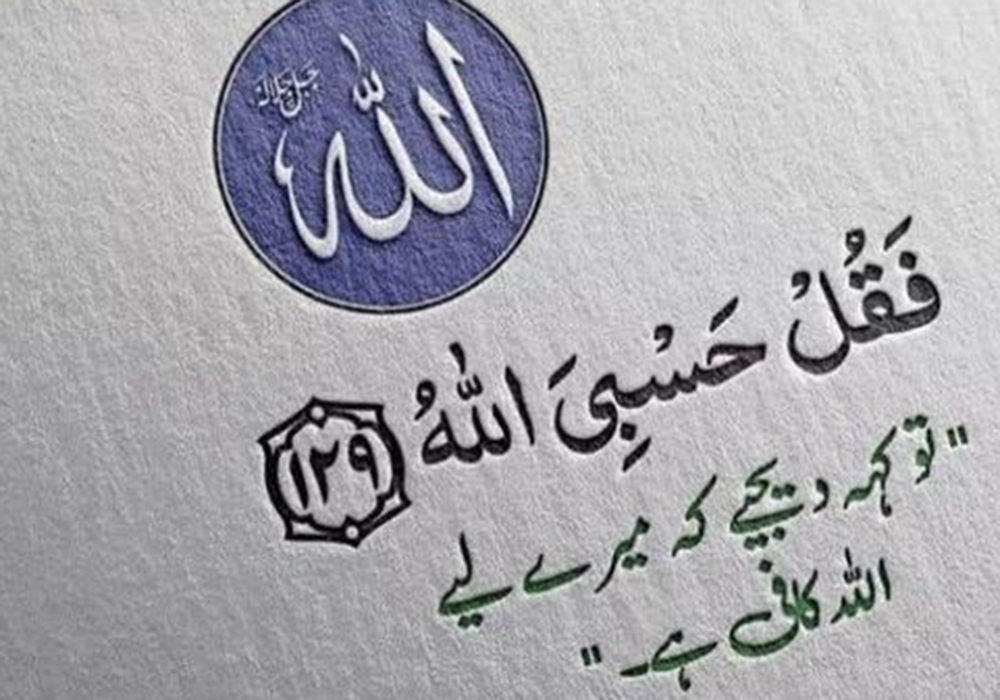 الله جل جلاله
فَقُلْ حَسْبِيَ اللهُ ١٢٩
"تو کہہ دیجیے کہ میرے لیے
اللہ کافی ہے۔"